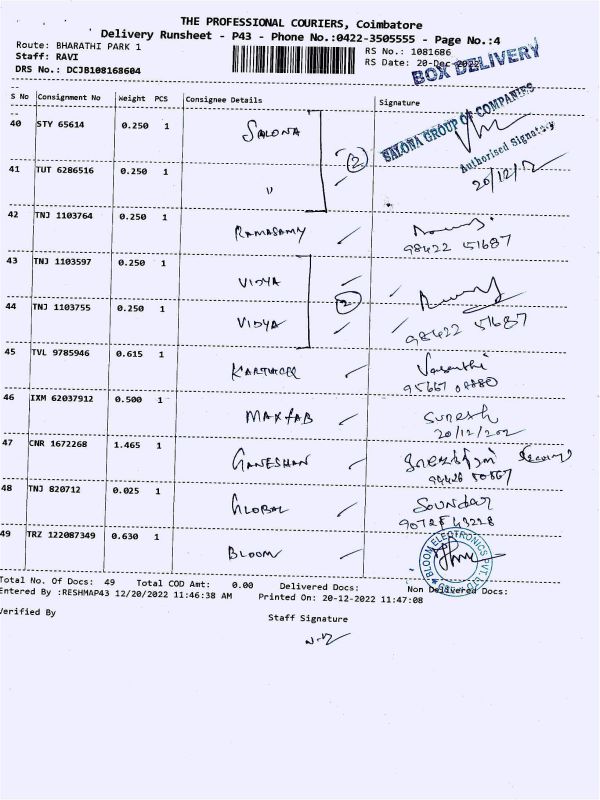 THE PROFESSIONAL COURIERS, Coimbatore
Delivery Runsheet - P43 - Phone No.:0422-3505555 - Page No.:4
Route: BHARATHI PARK 1
RS No.: 1081686
Staff: RAVI
RS Date: 20-Dec-2022
DRS No.: DCJB108168604
BOX DELIVERY
S No Consignment No Weight PCS Consignee Details Signature
40 STY 65614 0.250 1 SALONA
SALONA GROUP OF COMPANIES
Authorised Signatory
20/12/
(2)
41 TUT 6286516 0.250 1 "
42 TNJ 1103764 0.250 1 RAMASAMY
98422 51687
43 TNJ 1103597 0.250 1 VIDYA
(2)
44 TNJ 1103755 0.250 1 VIDYA
98422 51687
45 TVL 9785946 0.615 1 Vasanthi
46 IXM 62037912 0.500 1 MAXFAB Suresh
20/12/202
47 CNR 1672268 1.465 1 GANESHAN
48 TNJ 820712 0.025 1 GLOBAL Soundar
49 TRZ 122087349 0.630 1 BLOOM
BLOOM ELECTRONICS PVT LTD
Total No. Of Docs: 49 Total COD Amt: 0.00 Delivered Docs: Non Delivered Docs:
Entered By :RESHMAP43 12/20/2022 11:46:38 AM Printed On: 20-12-2022 11:47:08
Verified By
Staff Signature